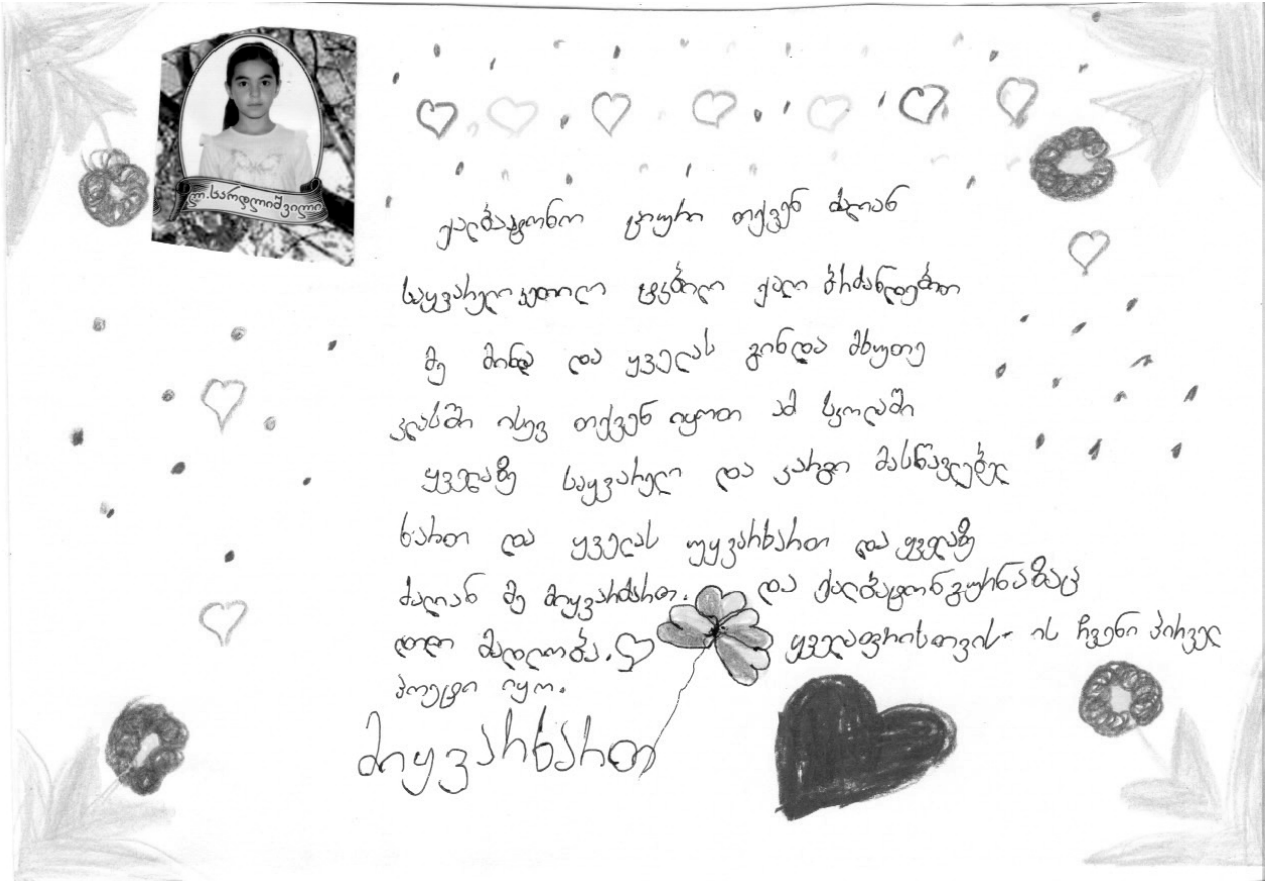 ლ.სარდლიშვილი
ქალბატონო ციური თქვენ ძალიან
საყვარელი კეთილი ტკბილი ქალი ბრძანდებით
მე მინდა და ყველას გვინდა მხუთე
კლასში ისევ თქვენ იყოთ ამ სკოლაში
ყველაზე საყვარელი და კარგი მასწავლებელ
ხართ და ყველას უყვარხართ და ყველაზე
ძალიან მე მიყვარხართ. და ქალბატონ გურნაზაც
დიდი მადლობა. ყველაფრისთვის ის ჩვენი პირველ
პოეტი იყო.
მიყვარხართ